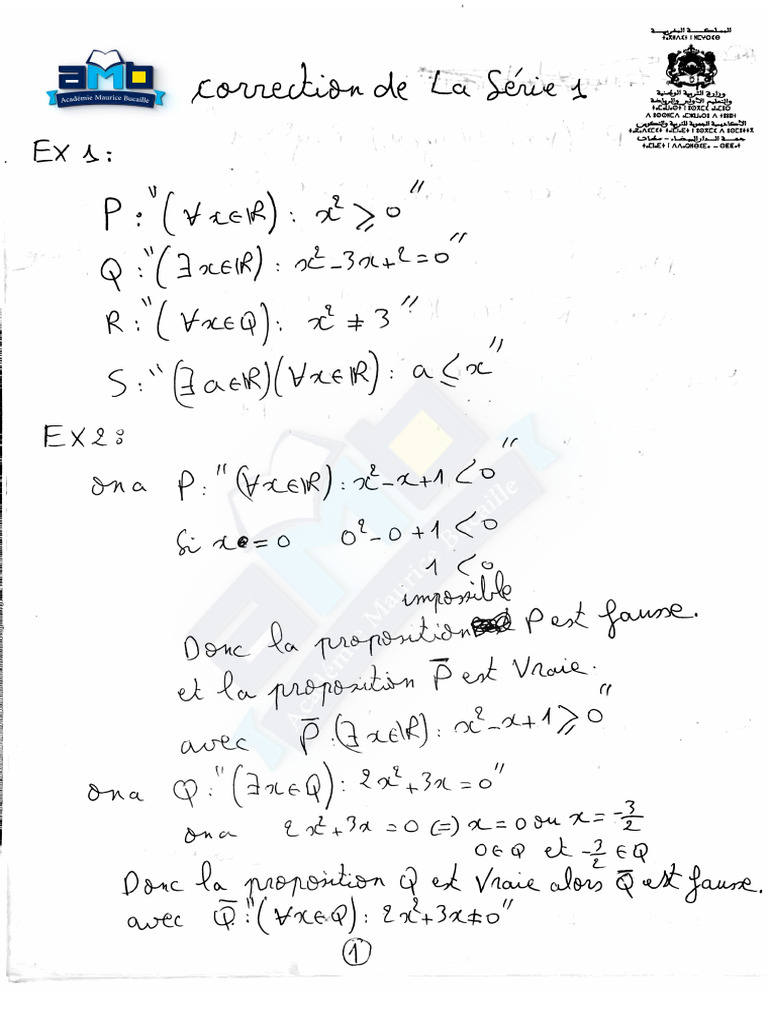 aMb
Académie Maurice Bucaille
correction de La Série 1
المملكة المغربية
وزارة التربية الوطنية
والتعليم الأولي والرياضة
الأكاديمية الجهوية للتربية والتكوين
Ex 1:
P: "(∀x∈ℝ): x² ⩾ 0"
Q: "(∃x∈ℝ): x²-3x+2=0"
R: "(∀x∈Q): x² ≠ 3"
S: "(∃a∈ℝ)(∀x∈ℝ): a ⩽ x"
EX2:
ona P: "(∀x∈ℝ): x²-x+1 < 0"
Si x=0 0²-0+1 < 0
1 < 0
impossible
Donc la proposition P est fausse.
et la proposition P̄ est Vraie.
avec P̄: (∃x∈ℝ): x²-x+1 ⩾ 0"
ona Q: "(∃x∈Q): 2x²+3x=0"
ona 2x²+3x=0 (=) x=0 ou x=-3/2
0∈Q et -3/2 ∈Q
Donc la proposition Q est Vraie alors Q̄ est fausse.
avec Q̄: "(∀x∈Q): 2x²+3x≠0"
1
Académie Maurice Bucaille